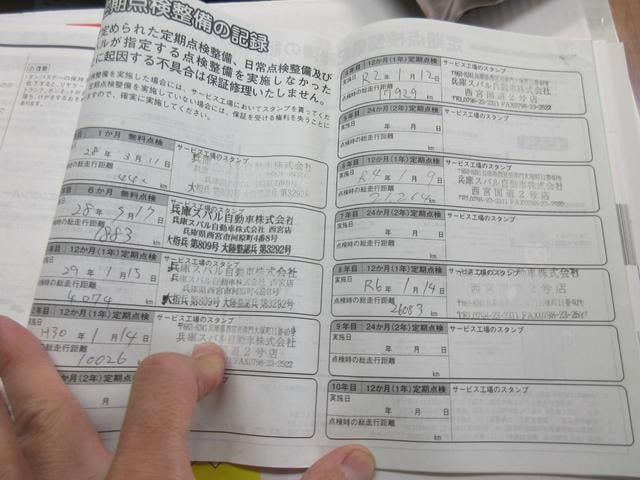 期点検整備の記録
定められた定期点検整備、日常点検整備及び
ルが指定する点検整備を実施しなかった
に起因する不具合は保証修理いたしません。
検整備を実施した場合には、サービス工場においてスタンプを貰ってくだ
定期点検整備を実施していない場合には、保証を受ける権利を失うことに
ますので、確実に実施してください。
1か月 無料点検
サービス工場のスタンプ
28年 3月 11日
点検時の総走行距離
km
兵庫スバル自動車株式会社
6か月 無料点検
サービス工場のスタンプ
28年 5月 17日
時の総走行距離
1883 km
兵庫スバル自動車株式会社
兵庫スバル自動車株式会社 西宮店
兵庫県西宮市河原町4番8号
大指兵 第809号 大陸整認兵 第3292号
年目 12か月(1年)定期点検
サービス工場のスタンプ
29年 1月 15日
の総走行距離
4074 km
兵庫スバル自動車株式会社
兵庫スバル自動車株式会社 西宮店
兵庫県西宮市河原町4番8号
大指兵 第809号 大陸整認兵 第3292号
年目 12か月(1年)定期点検
サービス工場のスタンプ
施日
H30年 1月 14日
総走行距離
10026
兵庫スバル自動車株式会社
西宮国道2号店
FAX0798-23-2522
か月(2年)定期点検
サービス工場のスタンプ
月 日
12か月(1年)定期点検
サービス工場のスタンプ
実施日
R2年 1月 12日
点検時の総走行距離
17929 km
兵庫スバル自動車株式会社
西宮国道2号店
TEL0798-23-2311 FAX0798-23-2522
5年目 24か月(2年)定期点検
サービス工場のスタンプ
実施日
年 月 日
点検時の総走行距離
km
12か月(1年)定期点検
サービス工場のスタンプ
実施日
R4年 1月 9日
点検時の総走行距離
21264 km
兵庫スバル自動車株式会社
西宮国道2号店
7年目 24か月(2年)定期点検
サービス工場のスタンプ
実施日
年 月 日
点検時の総走行距離
km
8年目 12か月(1年)定期点検
サービス工場のスタンプ
実施日
R6年 1月 14日
点検時の総走行距離
26083 km
兵庫スバル自動車株式会社
西宮国道2号店
9年目 24か月(2年)定期点検
サービス工場のスタンプ
実施日
年 月 日
点検時の総走行距離
km
10年目 12か月(1年)定期点検
サービス工場のスタンプ
実施日
年 月 日
点検時の総走行距離
km